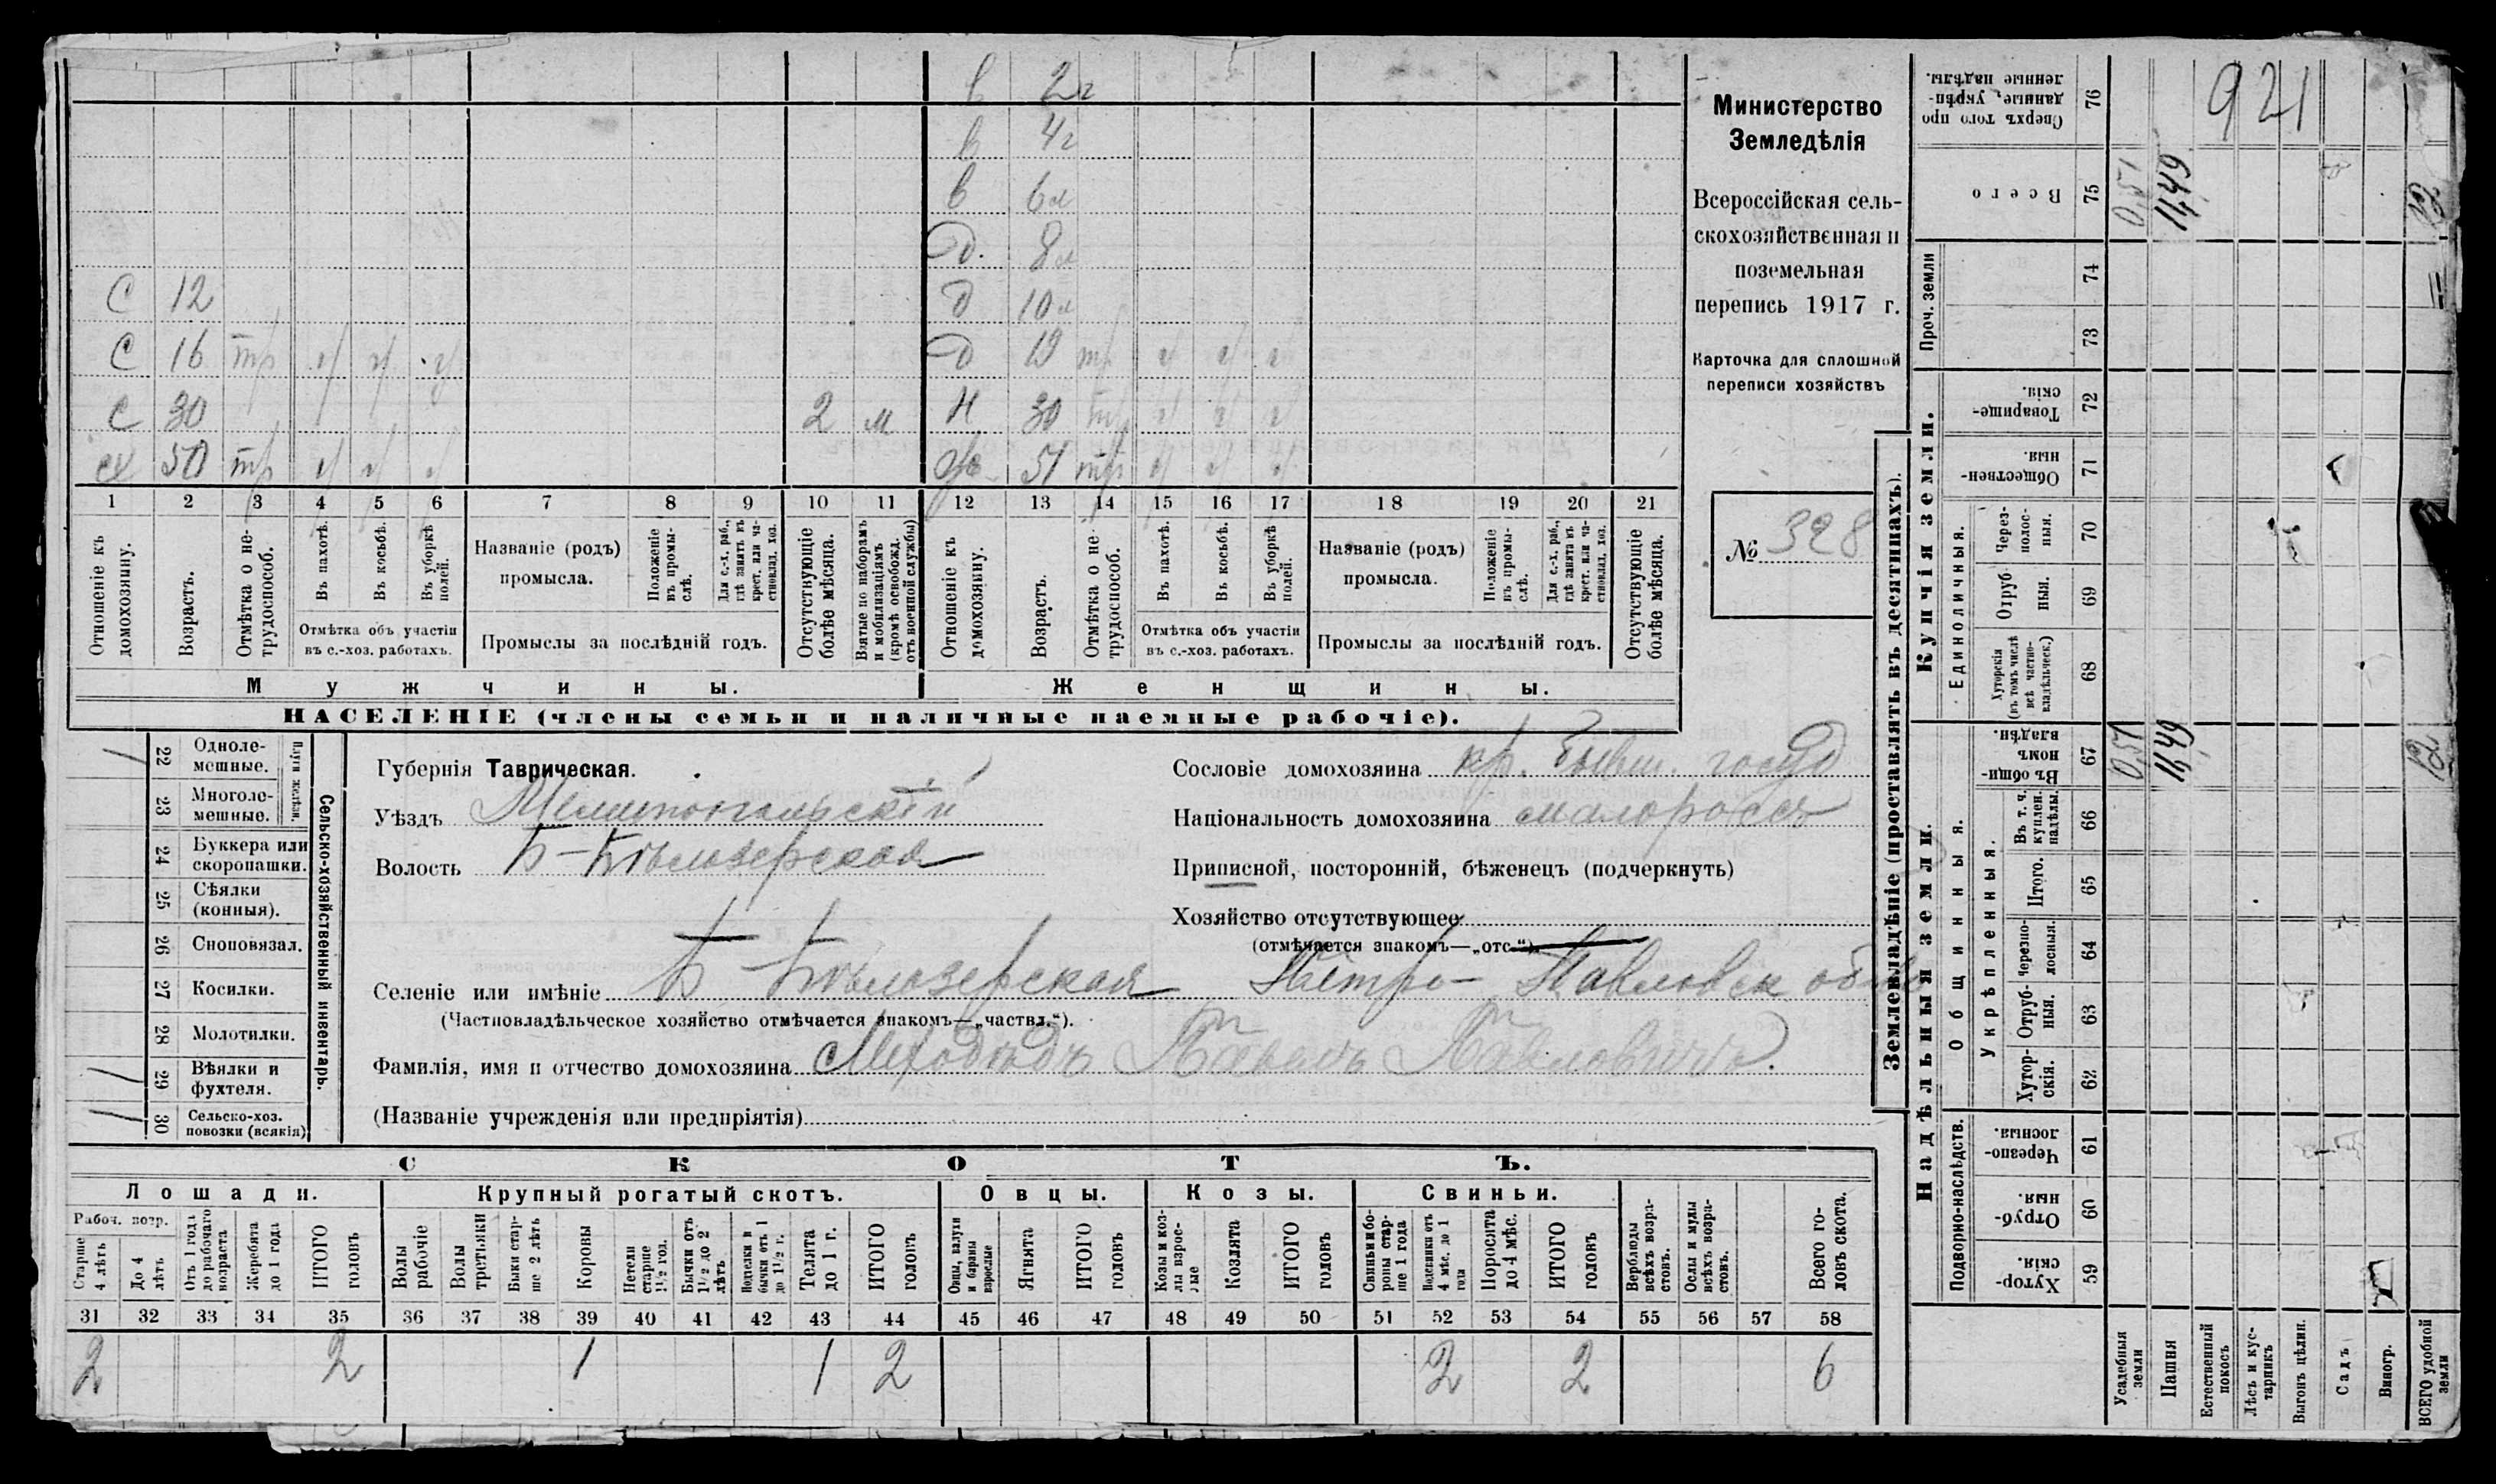 в 2г
в 4г
в 6л
д. 8л
С 12 д 10л
С 16 тр ч ч ч д 19 тр ч ч ч
С 30 2 м Н 30 тр ч ч ч
сх 50 тр ч ч ч 51 тр ч ч ч
1 2 3 4 5 6 7 8 9 10 11 12 13 14 15 16 17 18 19 20 21
Отношеніе къ домохозяину.
Возрастъ.
Отмѣтка о не-трудоспособ.
Въ пахотѣ.
Въ косьбѣ.
Въ уборкѣ полей.
Отмѣтка объ участіи
въ с.-хоз. работахъ.
Названіе (родъ)
промысла.
Положеніе въ промы-слѣ.
Для с.-х. раб., гдѣ занятъ въ крест. или ча-стновлад. хоз.
Промыслы за послѣдній годъ.
Отсутствующіе болѣе мѣсяца.
Взятые по наборамъ и мобилизаціямъ (кромѣ освобожд. отъ военной службы)
Отношеніе къ домохозяину.
Возрастъ.
Отмѣтка о не-трудоспособ.
Въ пахотѣ.
Въ косьбѣ.
Въ уборкѣ полей.
Отмѣтка объ участіи
въ с.-хоз. работахъ.
Названіе (родъ)
промысла.
Положеніе въ промы-слѣ.
Для с.-х. раб., гдѣ занята въ крест. или ча-стновлад. хоз.
Промыслы за послѣдній годъ.
Отсутствующіе болѣе мѣсяца.
Мужчины. Женщины.
НАСЕЛЕНІЕ (члены семьи и наличные наемные рабочіе).
Министерство
Земледѣлія
Всероссійская сель-
скохозяйственная и
поземельная
перепись 1917 г.
Карточка для сплошной
переписи хозяйствъ
№ 328
22 Одноле-мешные.
23 Многоле-мешные.
Плуги желѣзн.
24 Буккера или скоропашки.
25 Сѣялки (конныя).
26 Сноповязал.
27 Косилки.
28 Молотилки.
29 Вѣялки и фухтеля.
30 Сельско-хоз. повозки (всякія)
Сельско-хозяйственный инвентарь.
Губернія Таврическая.
Уѣздъ Мелитопольскій
Волость Б-Бѣлозерская
Сословіе домохозяина кр. бывш. госуд
Національность домохозяина малороссъ
Приписной, посторонній, бѣженецъ (подчеркнуть)
Хозяйство отсутствующее
(отмѣчается знакомъ—„отс.“).
Селеніе или имѣніе Б-Бѣлозерская Петро-Павловск общ
(Частновладѣльческое хозяйство отмѣчается знакомъ—„частвл.“).
Фамилія, имя и отчество домохозяина Павелъ Павловичъ.
(Названіе учрежденія или предпріятія)
СКОТЪ.
Лошади. Крупный рогатый скотъ. Овцы. Козы. Свиньи.
Рабоч. возр.
Старше 4 лѣтъ
До 4 лѣтъ
Отъ 1 года до рабочаго возраста
Жеребята до 1 года
ИТОГО головъ
Волы рабочіе
Волы третьяки
Быки стар-ше 2 лѣтъ
Коровы
Нетели старше 1½ год.
Бычки отъ 1½ до 2 лѣтъ
Подтелки и бычки отъ 1 до 1½ г.
Телята до 1 г.
ИТОГО головъ
Овцы, валухи и бараны взрослые
Ягнята
ИТОГО головъ
Козы и коз-лы взрос-лые
Козлята
ИТОГО головъ
Свиньи и бо-ровы стар-ше 1 года
Подсвинки отъ 4 мѣс. до 1 года
Поросята до 4 мѣс.
ИТОГО головъ
Верблюды всѣхъ возра-стовъ.
Ослы и мулы всѣхъ возра-стовъ.
Всего го-ловъ скота.
31 32 33 34 35 36 37 38 39 40 41 42 43 44 45 46 47 48 49 50 51 52 53 54 55 56 57 58
2 2 1 1 2 2 2 6
Землевладѣніе (проставлять въ десятинахъ).
Купчія земли.
Надѣльныя земли.
Сверхъ того про-данные, укрѣп-ленные надѣлы. 76
921
Всего 75 0,51 11,49 12
Проч. земли 74
73
Товарище-скія. 72
Обществен-ныя. 71
Единоличныя.
Через-полос-ныя. 70
Отруб-ныя. 69
Хуторскія (въ томъ числѣ всѣ частно-владѣльческ.) 68
Общинныя.
Въ общи-номъ владѣн. 67 0,51 11,49 12
Укрѣпленныя.
Въ т. ч. куплен. надѣлы. 66
Итого. 65
Черезпо-лосныя. 64
Отруб-ныя. 63
Хутор-скія. 62
Подворно-наслѣдств.
Черезпо-лосныя. 61
Отруб-ныя. 60
Хутор-скія. 59
Усадебныя земли
Пашня
Естественный покосъ
Лѣсъ и кус-тарникъ
Выгонъ цѣлин.
Садъ
Виногр.
ВСЕГО удобной земли